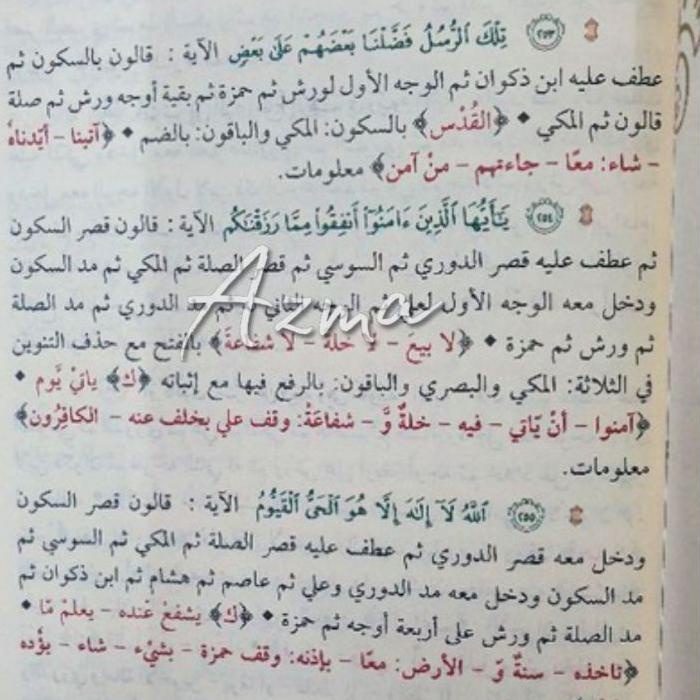 ﴿٢٥٣﴾ تِلْكَ ٱلرُّسُلُ فَضَّلْنَا بَعْضَهُمْ عَلَىٰ بَعْضٍ الآية : قالون بالسكون ثم
عطف عليه ابن ذكوان ثم الوجه الأول لورش ثم حمزة ثم بقية أوجه ورش ثم صلة
قالون ثم المكي • ﴿القُدْس﴾ بالسكون: المكي والباقون: بالضم • ﴿آتينا – أيّدناهُ
– شاء: معًا – جاءتهم – منْ آمن﴾ معلومات.
﴿٢٥٤﴾ يَـٰٓأَيُّهَا ٱلَّذِينَ ءَامَنُوٓا۟ أَنفِقُوا۟ مِمَّا رَزَقْنَـٰكُم الآية : قالون قصر السكون
ثم عطف عليه قصر الدوري ثم السوسي ثم قصر الصلة ثم المكي ثم مد السكون
ودخل معه الوجه الأول لعلي ثم الوجه الثاني له ثم مد الدوري ثم مد الصلة
ثم ورش ثم حمزة • ﴿لا بيعَ – لا خلةَ – لا شفاعةَ﴾ بالفتح مع حذف التنوين
في الثلاثة: المكي والبصري والباقون: بالرفع فيها مع إثباته ﴿ك﴾ ياتيْ يَّوم •
﴿آمنوا – أنْ يّاتي – فيه – خلةٌ وَّ – شفاعَةُ: وقف علي بخلف عنه – الكافِرُون﴾
معلومات.
﴿٢٥٥﴾ ٱللَّهُ لَآ إِلَـٰهَ إِلَّا هُوَ ٱلْحَىُّ ٱلْقَيُّومُ الآية : قالون قصر السكون
ودخل معه قصر الدوري ثم عطف عليه قصر الصلة ثم المكي ثم السوسي ثم
مد السكون ودخل معه مد الدوري وعلي ثم عاصم ثم هشام ثم ابن ذكوان ثم
مد الصلة ثم ورش على أربعة أوجه ثم حمزة • ﴿ك﴾ يشفعْ عنده – يعلمْ مّا •
﴿تاخذه – سنةٌ وَّ – الأرض: معًا – بإذنه: وقف حمزة – بشيْء – شاء – يؤُده
Azma